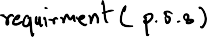 requirment ( p.s.s)